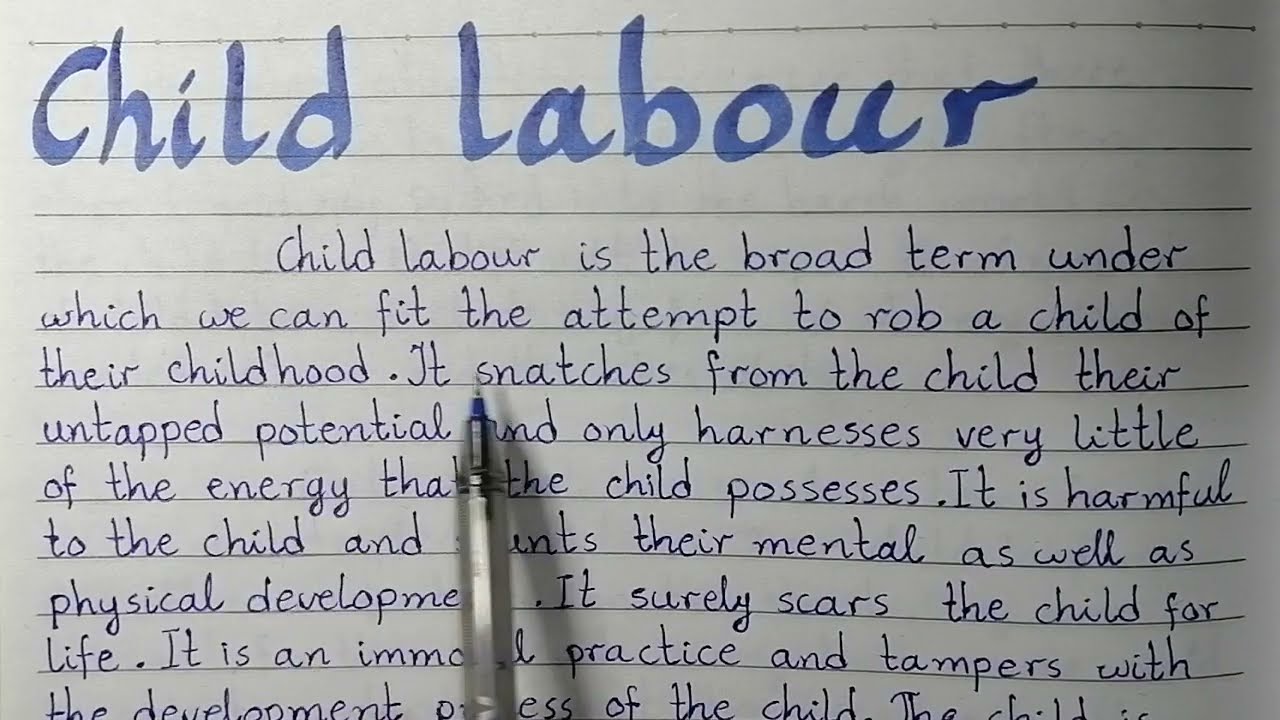 Child labour
Child labour is the broad term under
which we can fit the attempt to rob a child of
their childhood. It snatches from the child their
untapped potential and only harnesses very little
of the energy that the child possesses. It is harmful
to the child and their mental as well as
physical development. It surely scars the child for
life. It is an immoral practice and tampers with
the development of the child. The child is